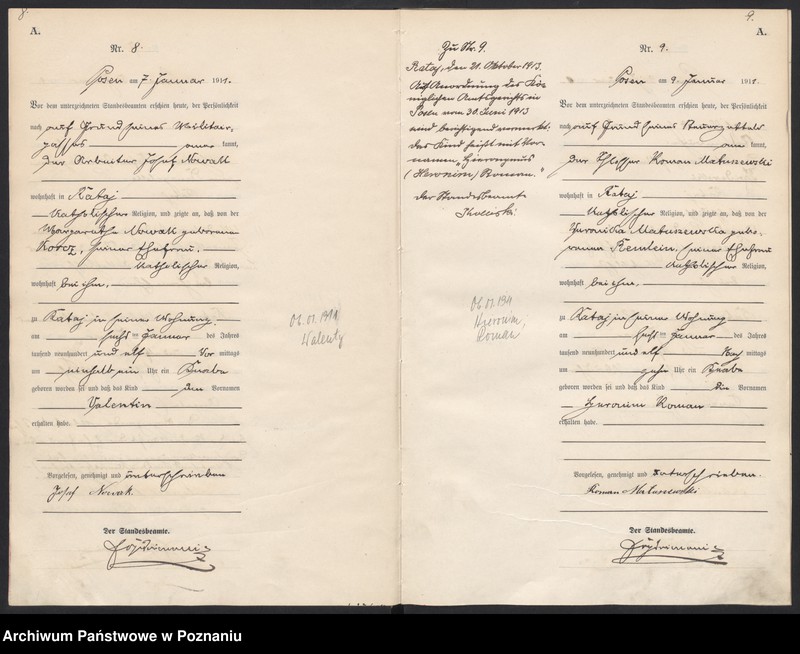 8.
A.
Nr. 8.
Posen am 7. Januar 1911.
Vor dem unterzeichneten Standesbeamten erschien heute, der Persönlichkeit
nach auf Grund seines Militär-
passes aner kannt,
der Arbeiter Josef Nowak
wohnhaft in Rataj
katholischer Religion, und zeigte an, daß von der
Margarethe Nowak geborenen
seiner Ehefrau
katholischer Religion,
wohnhaft bei ihm,
zu Rataj in seiner Wohnung
am sechsten Januar des Jahres
tausend neunhundert und elf Vor mittags
um Uhr ein Knabe
geboren worden sei und daß das Kind den Vornamen
Valentin
erhalten habe.
Vorgelesen, genehmigt und unterschrieben
Josef Nowak
Der Standesbeamte.
06.01.1911
Walenty
Zu Nr. 9.
Rataj, den 21. Oktober 1913.
Auf Anordnung des Kö-
niglichen Amtsgerichts in
Posen vom 30. Juni 1913
wird berichtigend vermerkt:
das Kind heißt mit Vor-
namen „Hieronymus
(Hieronim) Roman."
Der Standesbeamte
06.01.1911
Hieronim,
Roman
9.
A.
Nr. 9.
Posen am 9. Januar 1911
Vor dem unterzeichneten Standesbeamten erschien heute, der Persönlichkeit
nach auf Grund seines Steuerzettels
aner kannt,
der Schlosser Roman Matuszewski
wohnhaft in Rataj
katholischer Religion, und zeigte an, daß von der
Veronika Matuszewska gebo-
renen seiner Ehefrau
katholischer Religion,
wohnhaft bei ihm,
zu Rataj in seiner Wohnung
am sechsten Januar des Jahres
tausend neunhundert und elf Nach mittags
um zehn Uhr ein Knabe
geboren worden sei und daß das Kind die Vornamen
Roman
erhalten habe.
Vorgelesen, genehmigt und unterschrieben.
Roman Matuszewski
Der Standesbeamte.
Archiwum Państwowe w Poznaniu